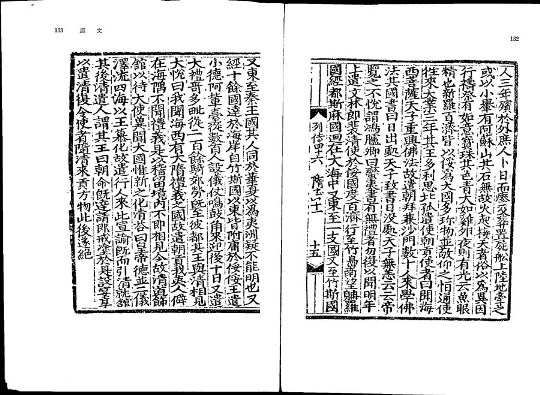 132
人三年殯於外庶人卜日而瘞及葬置屍船上陸地牽之
或以小轝有阿蘇山其石無故火起接天者俗以為異因
行禱祭有如意寶珠其色青大如雞卵夜則有光云魚眼
精也新羅百濟皆以倭為大國多珍物並敬仰之恒通使
往來大業三年其王多利思比孤遣使朝貢使者曰聞海
西菩薩天子重興佛法故遣朝拜兼沙門數十人來學佛
法其國書曰日出處天子致書日沒處天子無恙云云帝
覽之不悅謂鴻臚卿曰蠻夷書有無禮者勿復以聞明年
上遣文林郎裴清使於俀國度百濟行至竹島南望羅
國經都斯麻國迥在大海中又東至一支國又至竹斯國
列傳四十六 隋書八十一 十五
133
又東至秦王國其人同於華夏以為夷洲疑不能明也又
經十餘國達於海岸自竹斯國以東皆附庸於俀俀王遣
小德阿輩臺從數百人設儀仗鳴鼓角來迎後十日又遣
大禮哥多毗從二百餘騎郊勞既至彼都其王與清相見
大悅曰我聞海西有大隋禮義之國故遣朝貢我夷人僻
在海隅不聞禮義是以稽留境內不即相見今故清道飾
館以待大使冀聞大國惟新之化清答曰皇帝德並二儀
澤流四海以王慕化故遣行人來此宣諭既而引清就館
其後清遣人謂其王曰朝命既達請即戒塗於是設宴享
以遣清復令使者隨清來貢方物此後遂絕